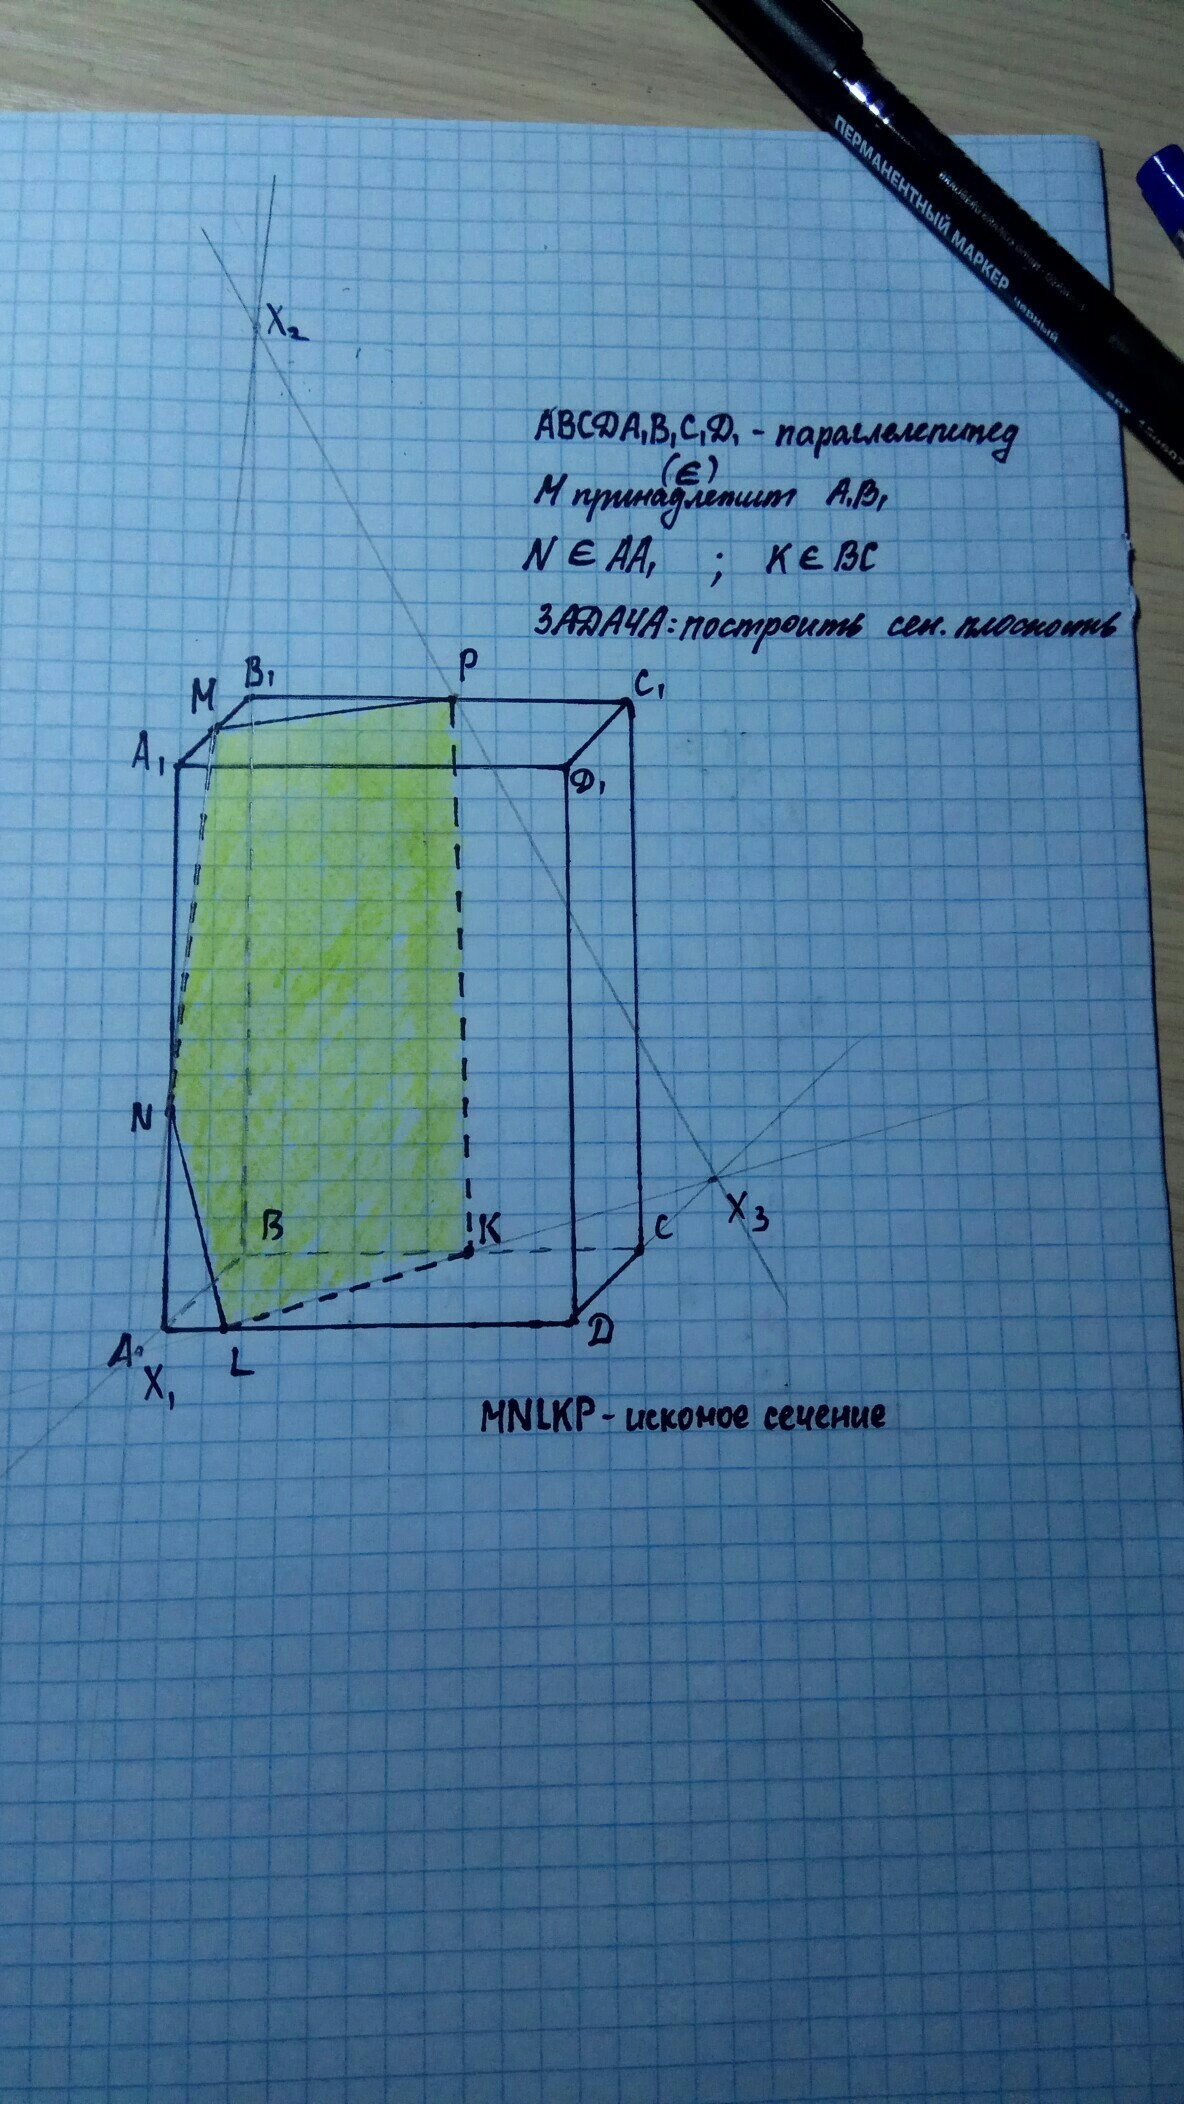 ПЕРМАНЕНТНЫЙ МАРКЕР черный
X₂
ABCDA₁B₁C₁D₁ - параллелепипед
(∈)
M принадлежит A₁B₁
N ∈ AA₁ ; K ∈ BC
ЗАДАЧА: построить сек. плоскость
B₁ P C₁
M
A₁ D₁
N
X₃
B K C
A D
X₁ L
MNLKP - искомое сечение